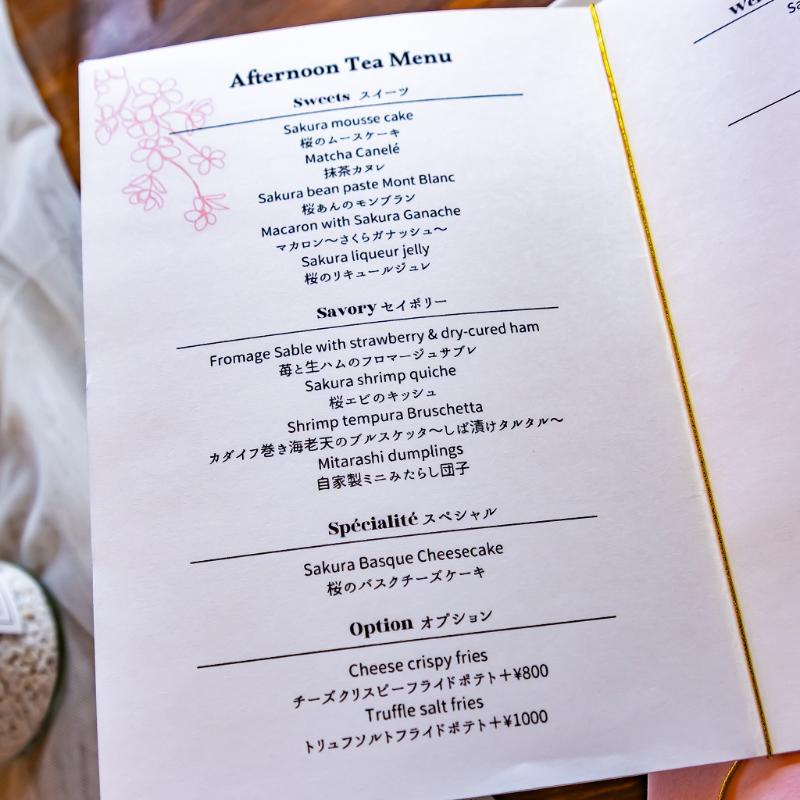 Afternoon Tea Menu
Sweets スイーツ
Sakura mousse cake
桜のムースケーキ
Matcha Canelé
抹茶カヌレ
Sakura bean paste Mont Blanc
桜あんのモンブラン
Macaron with Sakura Ganache
マカロン～さくらガナッシュ～
Sakura liqueur jelly
桜のリキュールジュレ
Savory セイボリー
Fromage Sable with strawberry & dry-cured ham
苺と生ハムのフロマージュサブレ
Sakura shrimp quiche
桜エビのキッシュ
Shrimp tempura Bruschetta
カダイフ巻き海老天のブルスケッタ～しば漬けタルタル～
Mitarashi dumplings
自家製ミニみたらし団子
Spécialité スペシャル
Sakura Basque Cheesecake
桜のバスクチーズケーキ
Option オプション
Cheese crispy fries
チーズクリスピーフライドポテト＋¥800
Truffle salt fries
トリュフソルトフライドポテト＋¥1000